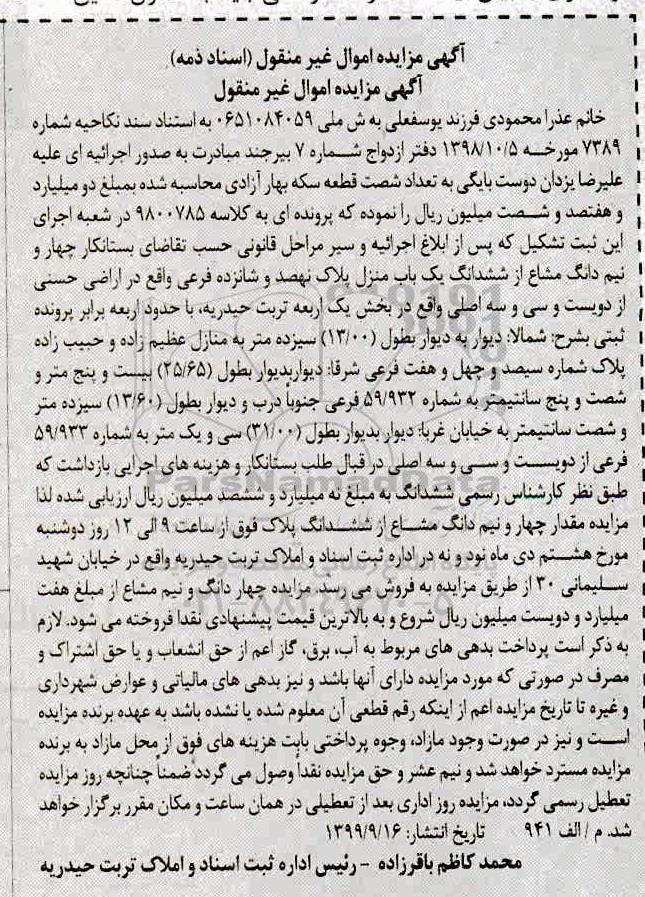 آگهی مزایده اموال غیر منقول (اسناد ذمه)
آگهی مزایده اموال غیر منقول
خانم عذرا محمودی فرزند یوسفعلی به ش ملی ۰۶۵۱۰۸۴۰۵۹ به استناد سند نکاحیه شماره
۷۳۸۹ مورخه ۱۳۹۸/۱۰/۵ دفتر ازدواج شماره ۷ بیرجند مبادرت به صدور اجرائیه ای علیه
علیرضا یزدان دوست بایگی به تعداد شصت قطعه سکه بهار آزادی محاسبه شده بمبلغ دو میلیارد
و هفتصد و شصت میلیون ریال را نموده که پرونده ای به کلاسه ۹۸۰۰۷۸۵ در شعبه اجرای
این ثبت تشکیل که پس از ابلاغ اجرائیه و سیر مراحل قانونی حسب تقاضای بستانکار چهار و
نیم دانگ مشاع از ششدانگ یک باب منزل پلاک نهصد و شانزده فرعی واقع در اراضی حسنی
از دویست و سی و سه اصلی واقع در بخش یک اربعه تربت حیدریه، با حدود اربعه برابر پرونده
ثبتی بشرح: شمالا: دیوار به دیوار بطول (۱۳/۰۰) سیزده متر به منازل عظیم زاده و حبیب زاده
پلاک شماره سیصد و چهل و هفت فرعی شرقا: دیواربدیوار بطول (۲۵/۶۵) بیست و پنج متر و
شصت و پنج سانتیمتر به شماره ۵۹/۹۳۲ فرعی جنوباً درب و دیوار بطول (۱۳/۶۰) سیزده متر
و شصت سانتیمتر به خیابان غربا: دیوار بدیوار بطول (۳۱/۰۰) سی و یک متر به شماره ۵۹/۹۳۳
فرعی از دویست و سی و سه اصلی در قبال طلب بستانکار و هزینه های اجرایی بازداشت که
طبق نظر کارشناس رسمی ششدانگ به مبلغ نه میلیارد و ششصد میلیون ریال ارزیابی شده لذا
مزایده مقدار چهار و نیم دانگ مشاع از ششدانگ پلاک فوق از ساعت ۹ الی ۱۲ روز دوشنبه
مورخ هشتم دی ماه نود و نه در اداره ثبت اسناد و املاک تربت حیدریه واقع در خیابان شهید
سلیمانی ۳۰ از طریق مزایده به فروش می رسد. مزایده چهار دانگ و نیم مشاع از مبلغ هفت
میلیارد و دویست میلیون ریال شروع و به بالاترین قیمت پیشنهادی نقدا فروخته می شود. لازم
به ذکر است پرداخت بدهی های مربوط به آب، برق، گاز اعم از حق انشعاب و یا حق اشتراک و
مصرف در صورتی که مورد مزایده دارای آنها باشد و نیز بدهی های مالیاتی و عوارض شهرداری
و غیره تا تاریخ مزایده اعم از اینکه رقم قطعی آن معلوم شده یا نشده باشد به عهده برنده مزایده
است و نیز در صورت وجود مازاد، وجوه پرداختی بابت هزینه های فوق از محل مازاد به برنده
مزایده مسترد خواهد شد و نیم عشر و حق مزایده نقداً وصول می گردد ضمناً چنانچه روز مزایده
تعطیل رسمی گردد، مزایده روز اداری بعد از تعطیلی در همان ساعت و مکان مقرر برگزار خواهد
شد. م / الف ۹۴۱ تاریخ انتشار: ۱۳۹۹/۹/۱۶
محمد کاظم باقرزاده - رئیس اداره ثبت اسناد و املاک تربت حیدریه
ParsNamadData